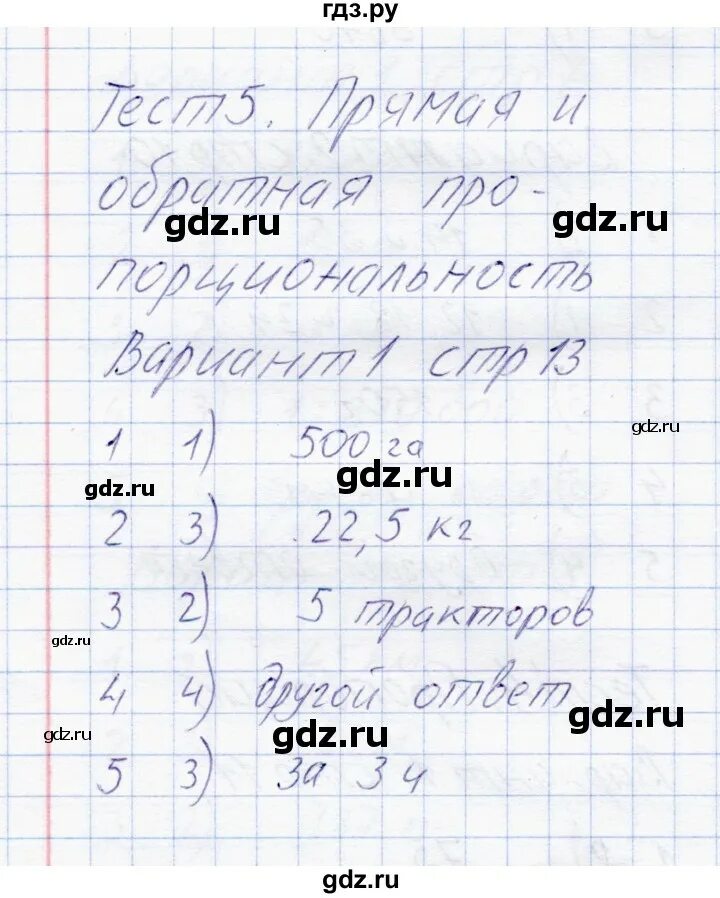 гдз.ру
Тест 5. Прямая и
обратная про-
gdz.ru
gdz.ru
порциональность
Вариант 1 стр 13
1 1) 500 га
gdz.ru
gdz.ru
gdz.ru
2 3) 22,5 кг
3 2) 5 тракторов
gdz.ru
4 4) другой ответ
gdz.ru
gdz.ru
gdz.ru
5 3) за 3 ч
gdz.ru